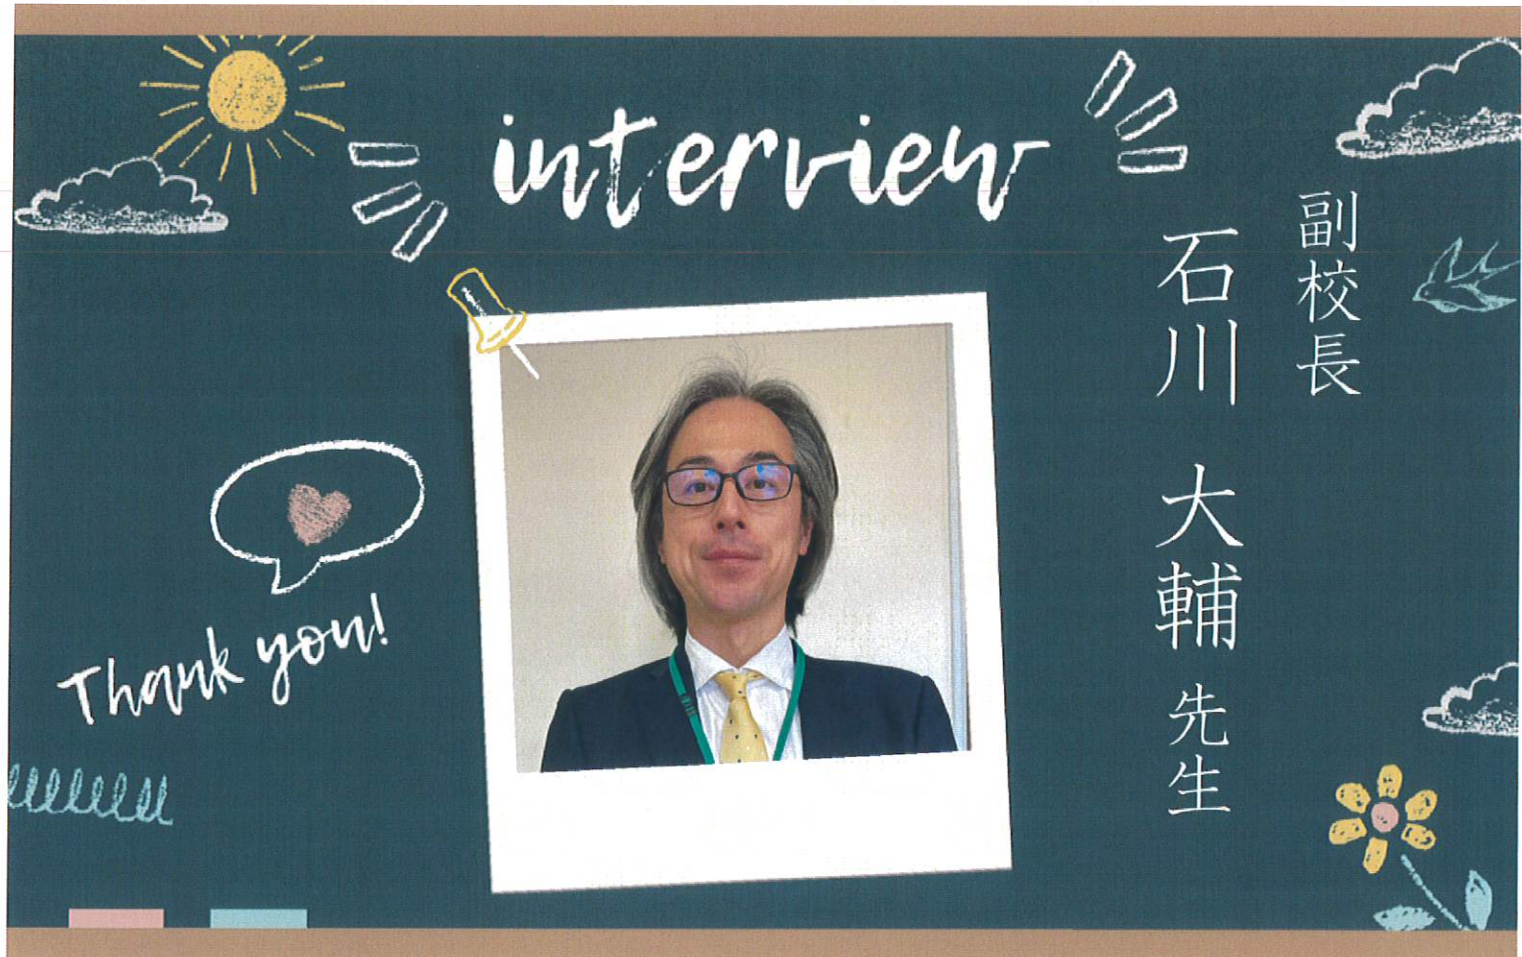 interview
副校長
石川 大輔 先生
Thank you!